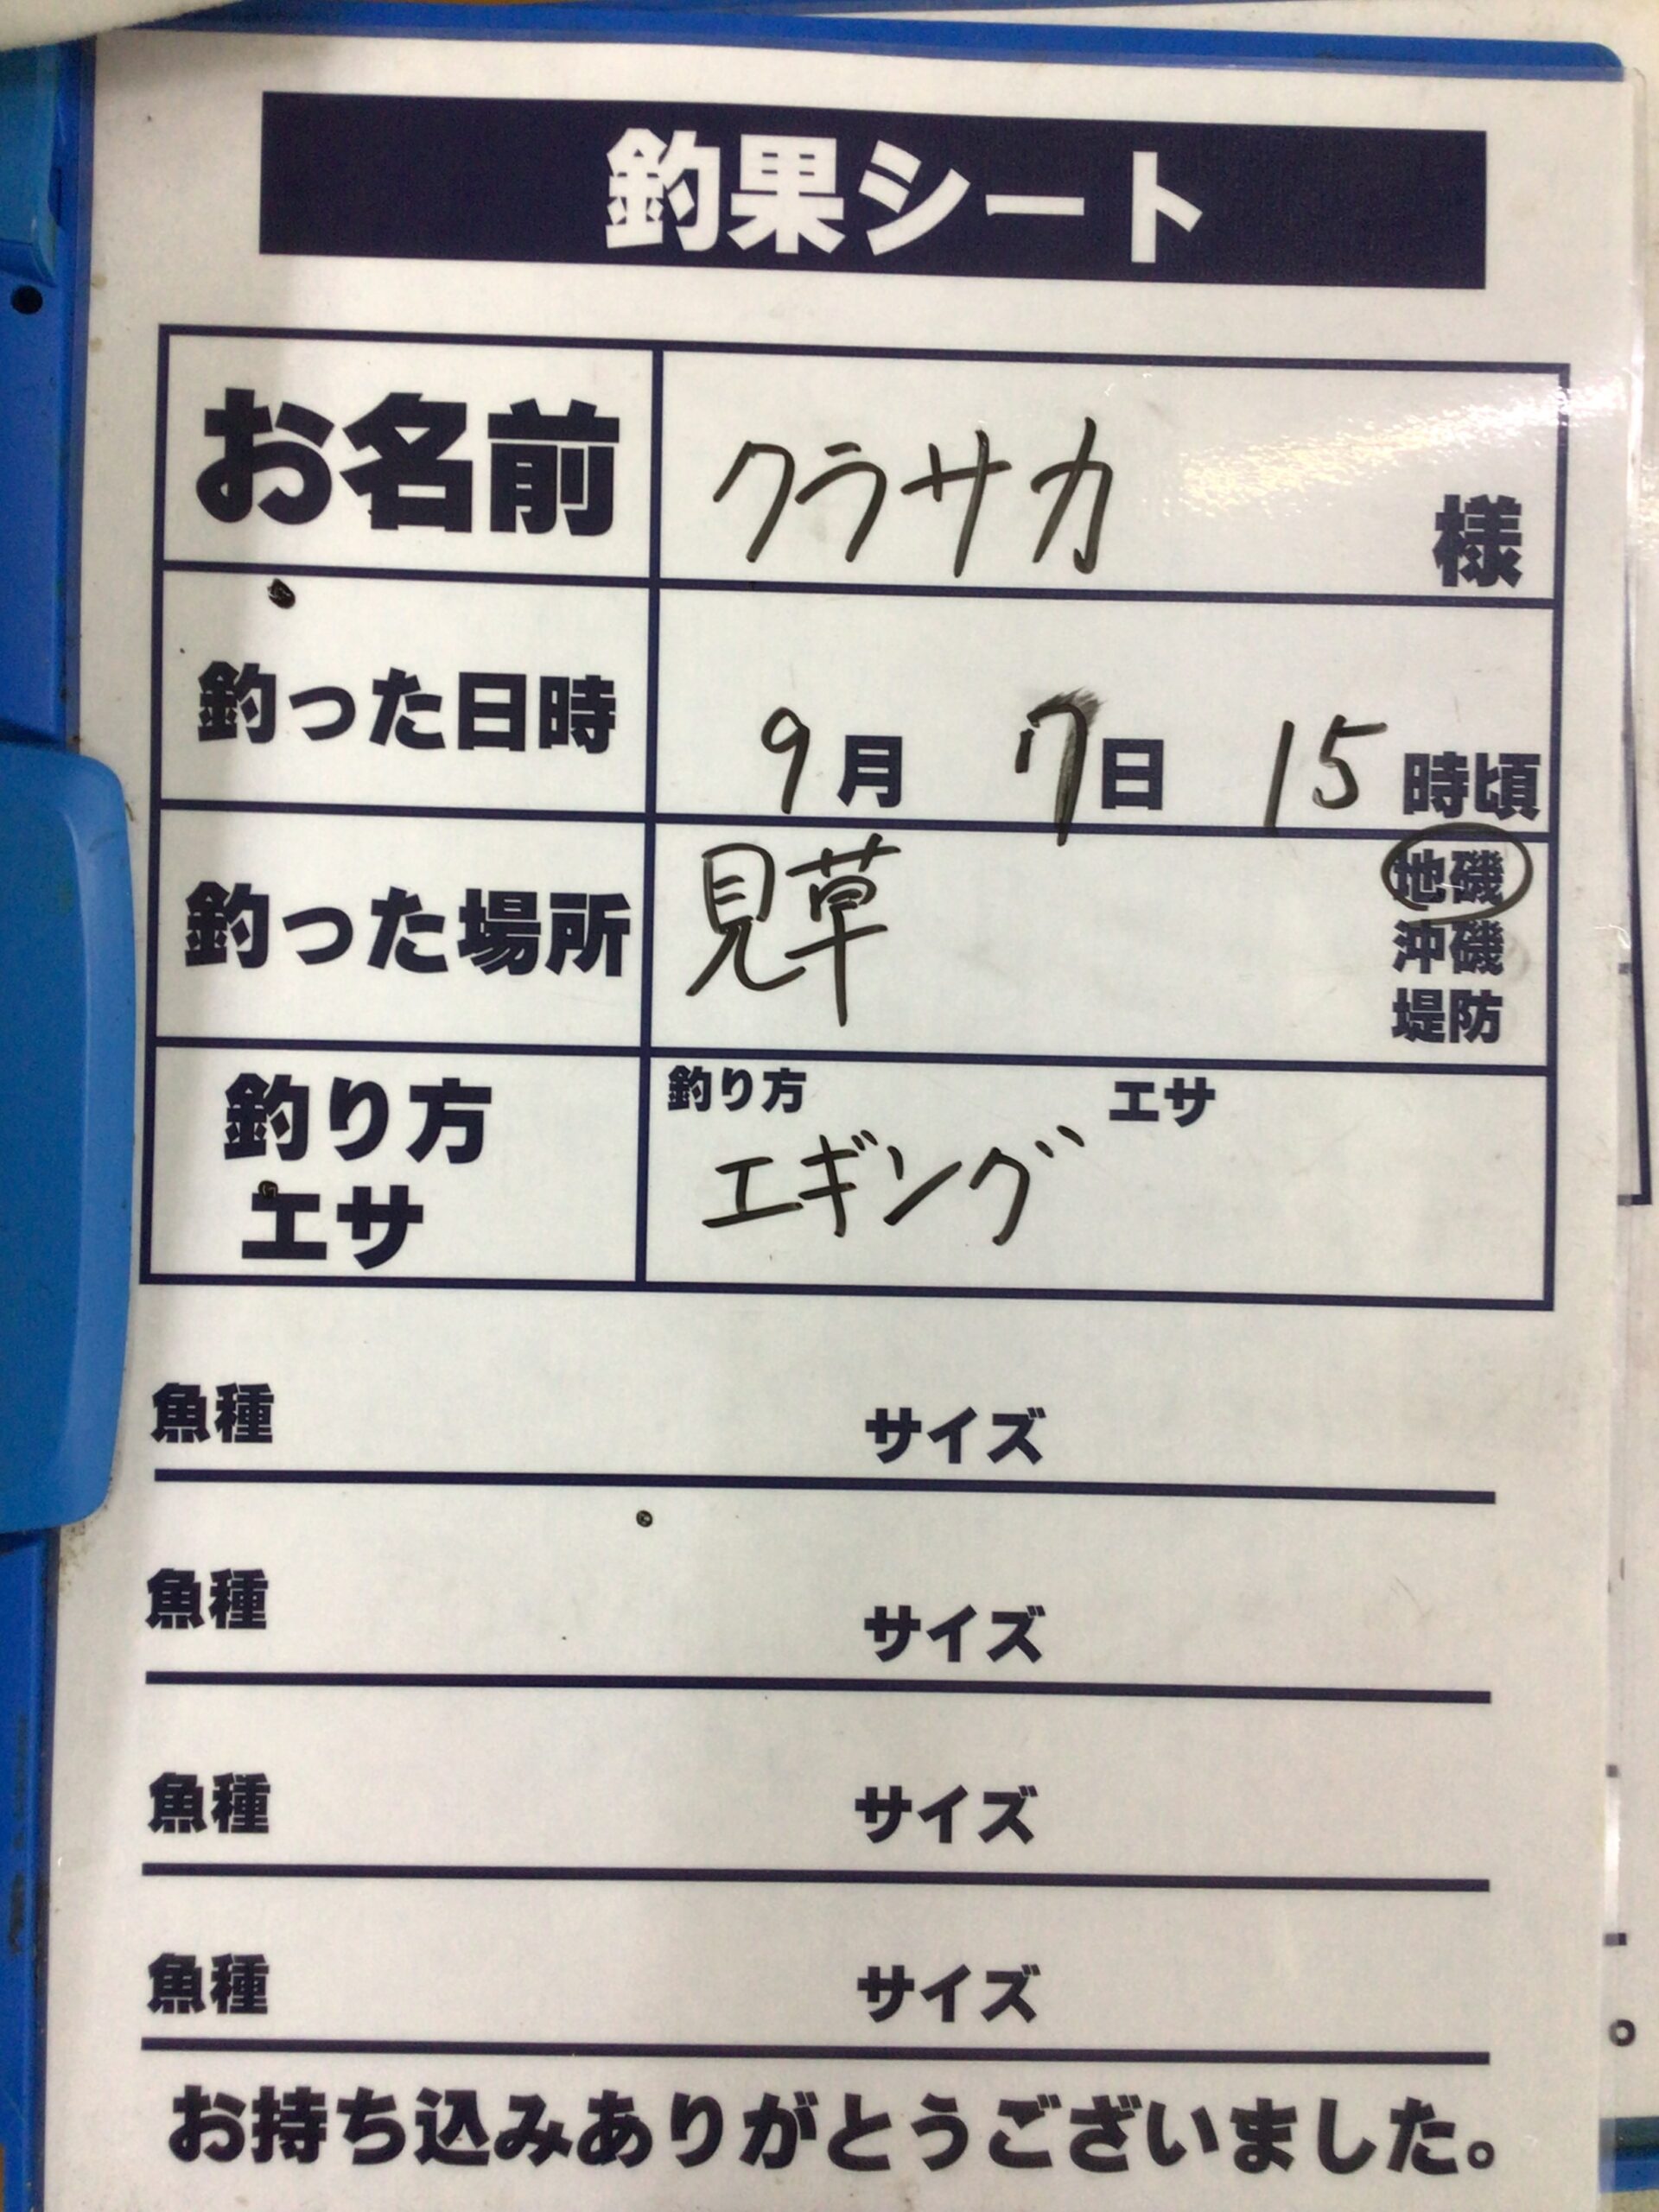 釣果シート
お名前 クラサカ 様
釣った日時 9月 7日 15時頃
釣った場所 見草 地磯
沖磯
堤防
釣り方 エサ 釣り方 エギング エサ
魚種 サイズ
魚種 サイズ
魚種 サイズ
魚種 サイズ
お持ち込みありがとうございました。